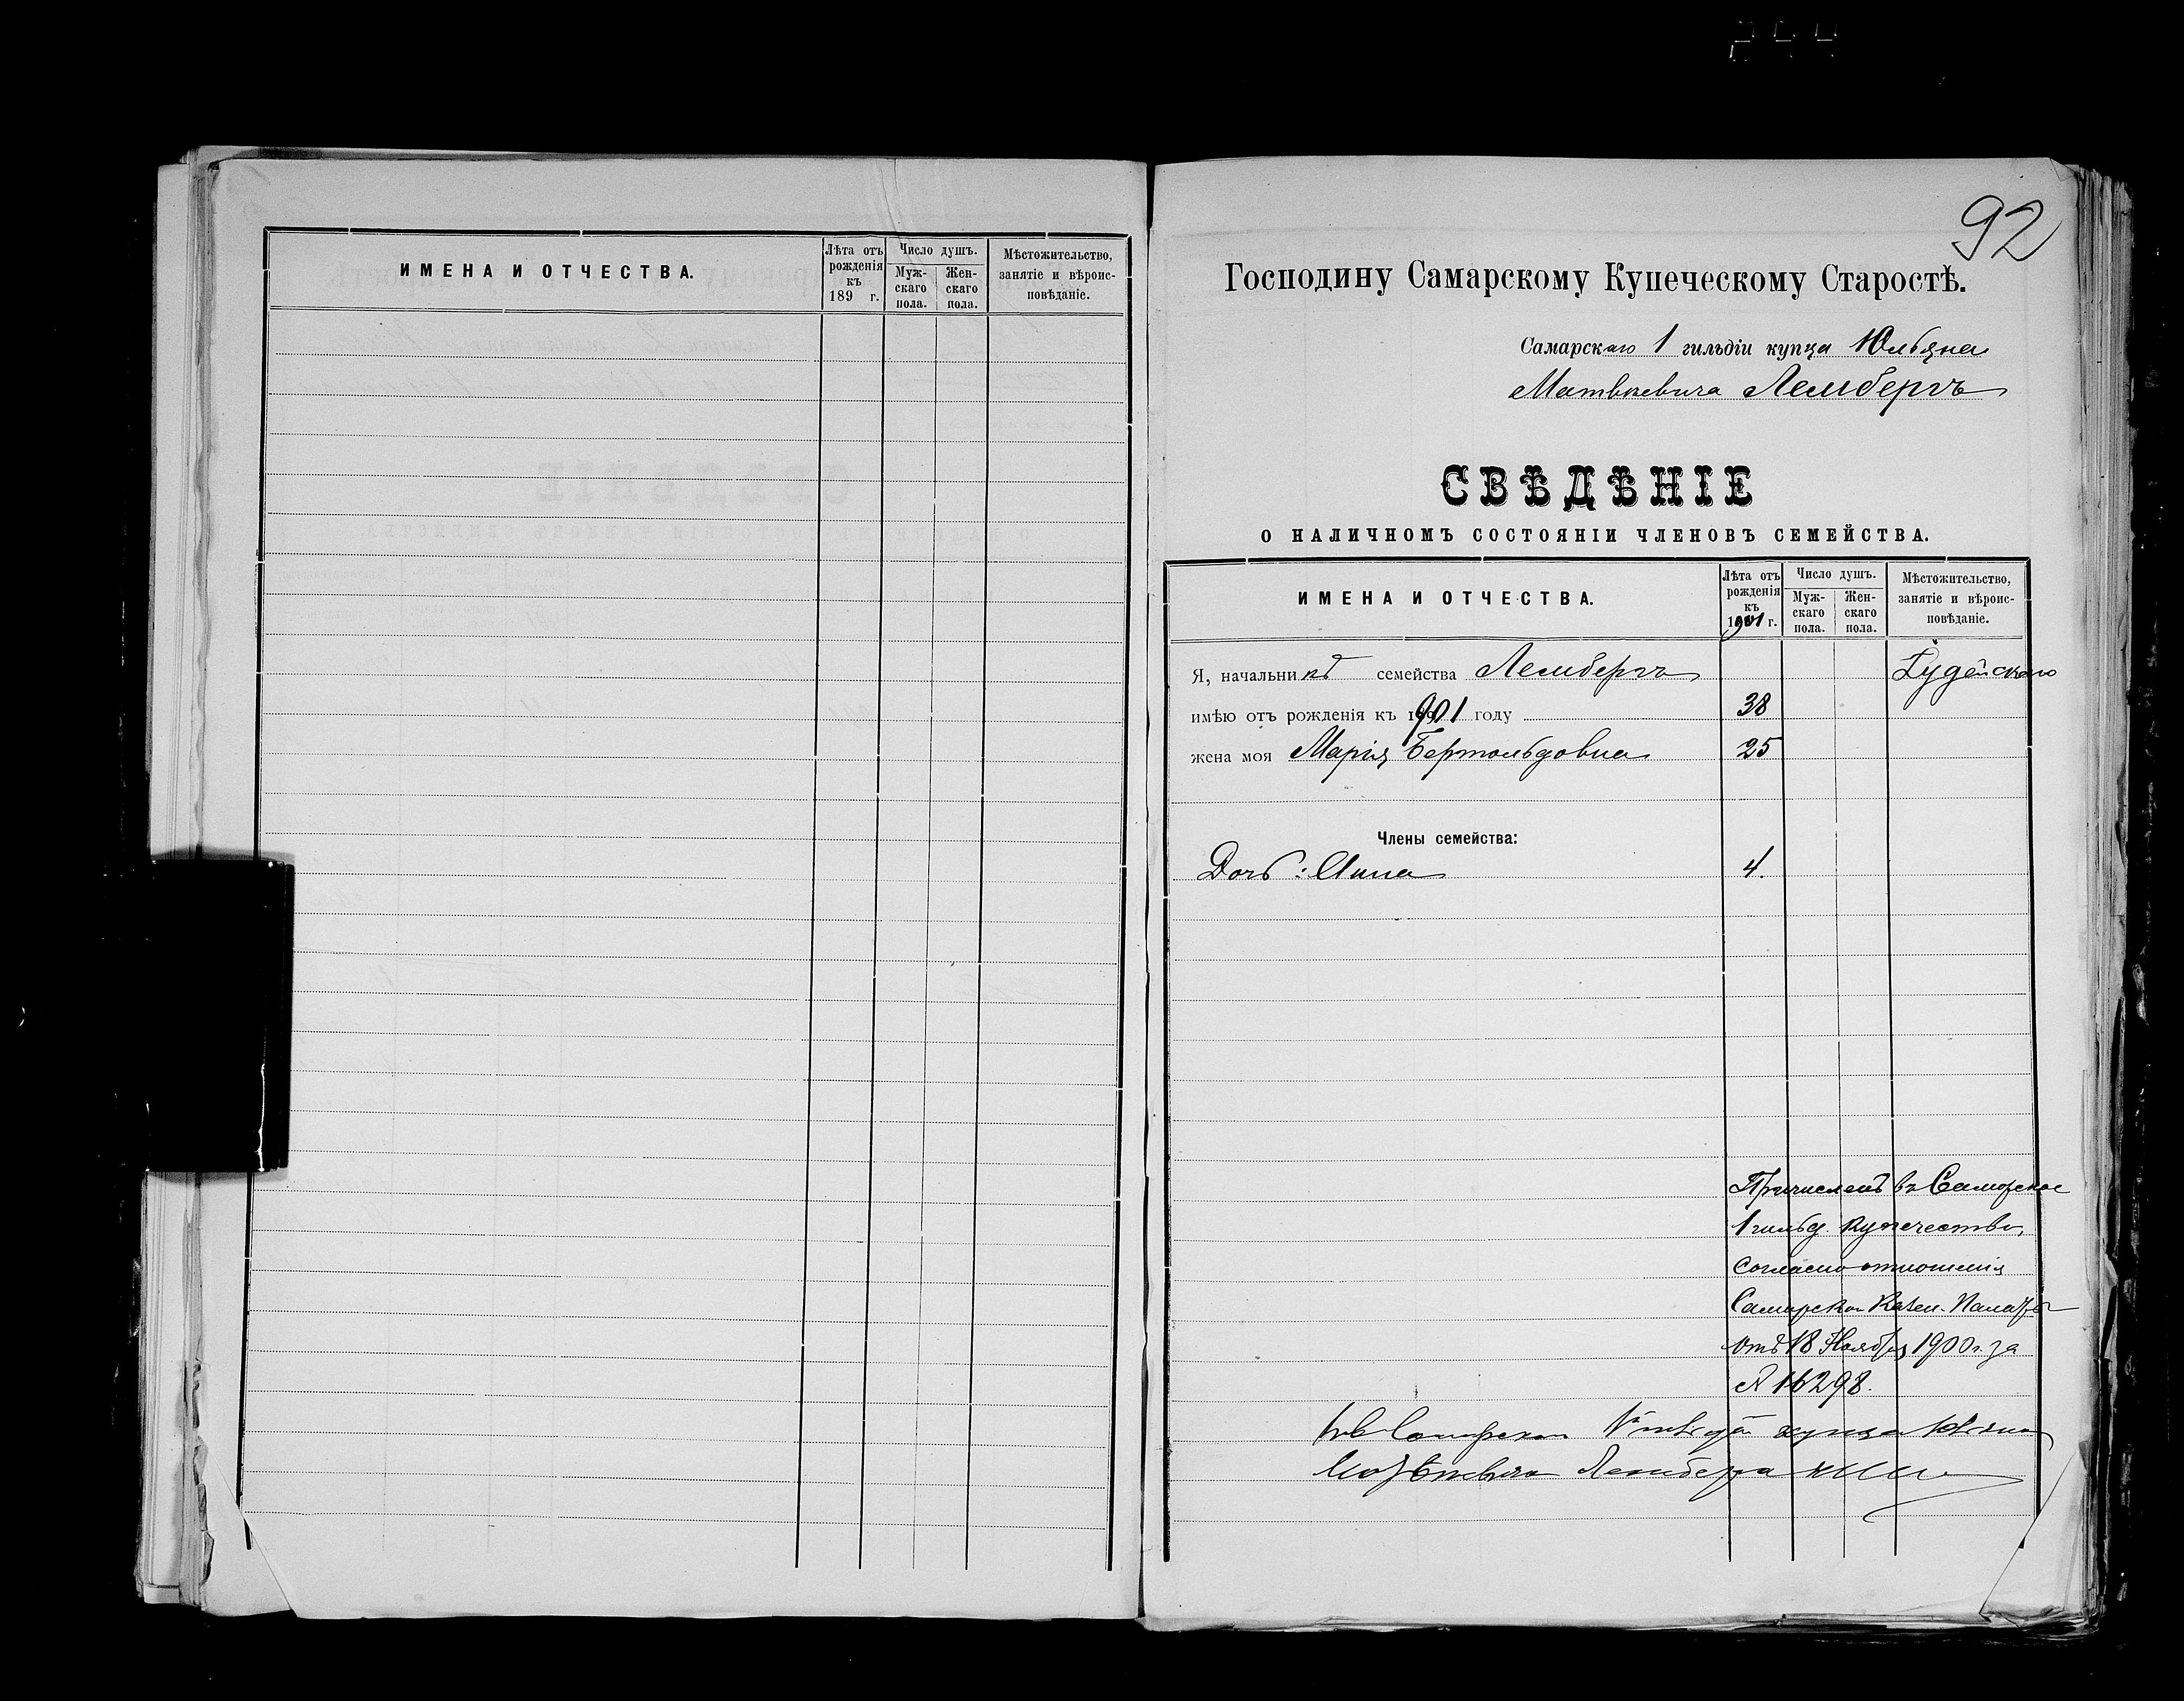 ИМЕНА И ОТЧЕСТВА.
Лѣта отъ рожденія къ 189 г.
Число душъ.
Мужскаго пола.
Женскаго пола.
Мѣстожительство, занятіе и вѣроисповѣданіе.
92
Господину Самарскому Купеческому Старостѣ.
Самарскаго 1 гильдіи купца Юльяна
Матвѣевича Лембергъ
СВѢДѢНІЕ
О НАЛИЧНОМЪ СОСТОЯНІИ ЧЛЕНОВЪ СЕМЕЙСТВА.
ИМЕНА И ОТЧЕСТВА.
Лѣта отъ рожденія къ 1901 г.
Число душъ.
Мужскаго пола.
Женскаго пола.
Мѣстожительство, занятіе и вѣроисповѣданіе.
Я, начальникъ семейства Лембергъ Іудейскаго
имѣю отъ рожденія къ 1901 году 38
жена моя Марія Бертольдовна 25
Члены семейства:
Дочь: Анна 4.
Причисленъ въ Самарское
1 гильд. купечество,
согласно отношенія
Самарской Казен. Палаты
отъ 18 Ноября 1900 г. за
№ 16298.
Самарскаго 1й гильдіи купца Юльяна
Матвѣевича Лемберга